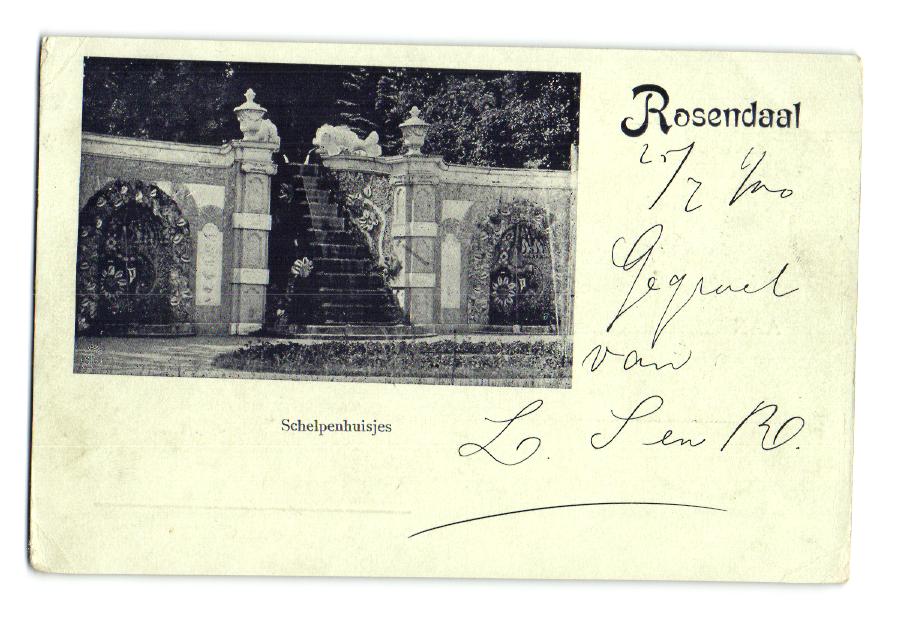 Rosendaal
25/7
Gegroet
van
L. S en R.
Schelpenhuisjes